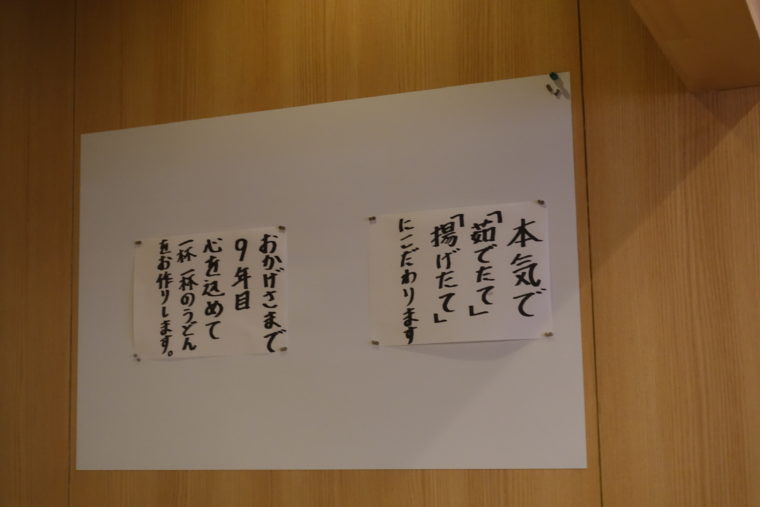 本気で
「茹でたて」
「揚げたて」
にこだわります
おかげさまで
9年目
心を込めて
一杯一杯のうどん
をお作りします。